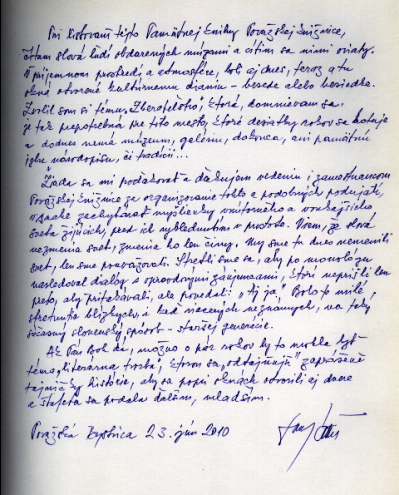 Pri listovaní tejto Pamätnej knihy Považskej knižnice,
čítam slová ľudí obdarených múzami a cítim sa nimi oviaty.
V príjemnom prostredí a atmosfére, boli aj dnes, teraz a tu
okná otvorené kultúrnemu dianiu – besede alebo besiedke.
Zvolil som si tému Zberateľstvo, ktorá, domnievam sa,
je tak prepotrebná pre toto mesto, ktoré desiatky rokov sa
a dodnes nemá múzeum, galériu, dokonca, ani pamätnú
izbu národopisu, či tradícií...
Žiada sa mi poďakovať a ďakujem vedeniu i zamestnancom
Považskej knižnice za organizovanie tohto a podobných podujatí,
v snahe zachytávať myšlienky vnútorného a vonkajšieho
sveta žijúcich, pred ich vyhliadnutím v prostote. Viem, že slová
nezmenia svet, zmenia ho len činy. My sme tu dnes nemenili
svet, len sme považovali. Stretli sme sa, aby po monológu
nasledoval dialóg s opravdovými záujemcami, ktorí neprišli len
preto, aby prikyvovali, ale povedali: „Aj ja". Bolo to milé
stretnutie blízkych, i keď viacerých neznámych, na taký
súčasný slovenský spôsob – staršej generácie.
Ak Pán Boh dá, možno o pár rokov by to mohla byť
téma, literárna tvorba, ktorou sa „odtajňujú" zaprášené
tajničky histórie, aby sa popri oknách otvorili aj dvere
a štafeta sa podala ďalším, mladším.
Považská Bystrica 23. jún 2010